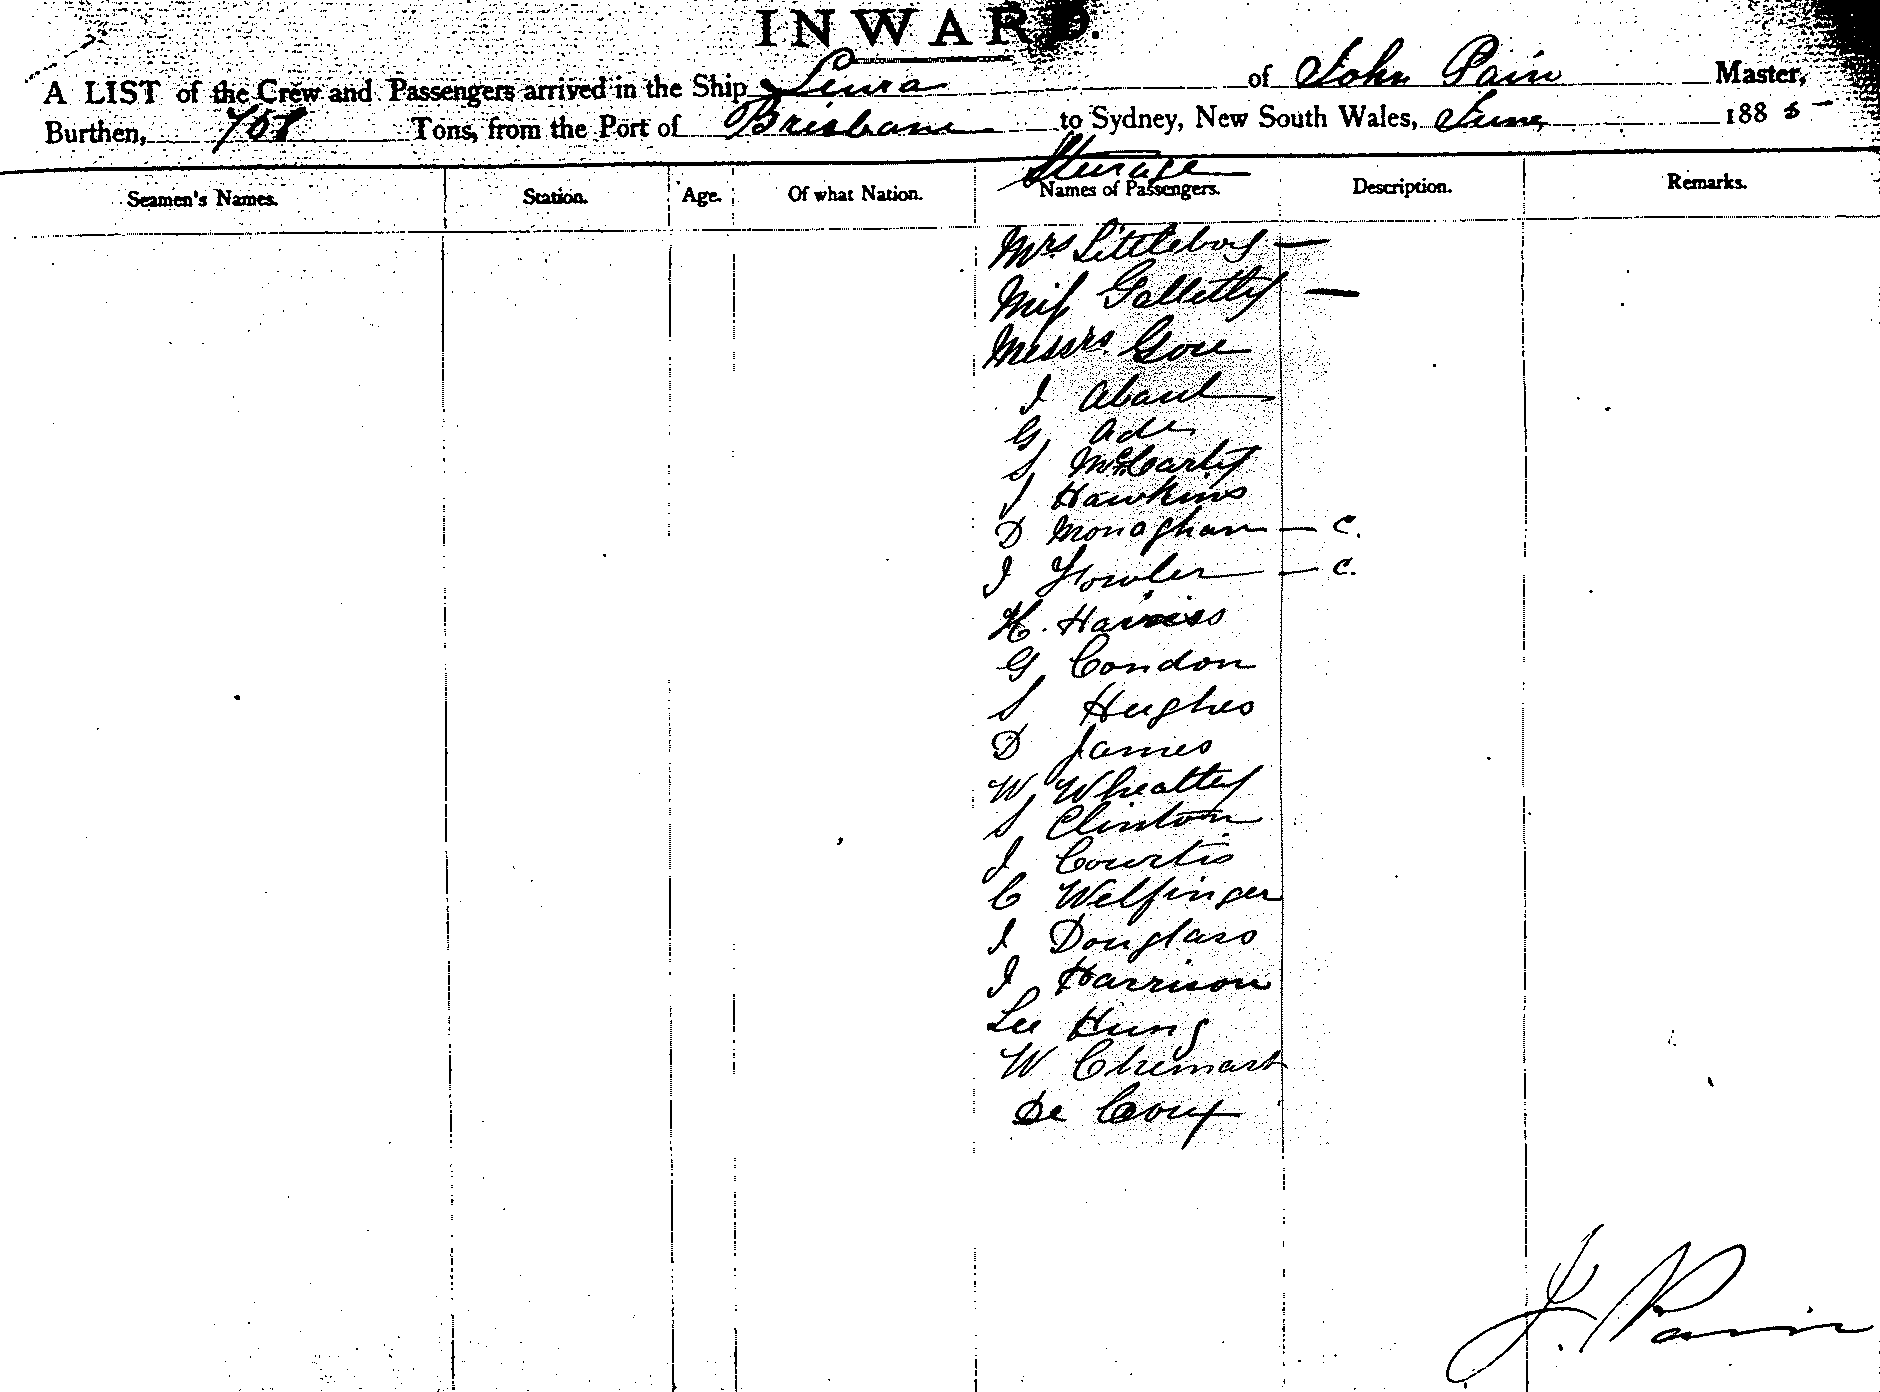 INWARD.
A LIST of the Crew and Passengers arrived in the Ship Leura of John Pain Master,
Burthen, 708 Tons, from the Port of Brisbane to Sydney, New South Wales, June 1885
Steerage
Seamen's Names. Station. Age. Of what Nation. Names of Passengers. Description. Remarks.
Mrs Littleboy —
Miss Gallettly —
Messrs Gore
J
G Ade
S McCarty
J Hawkins
D Monaghan — C.
J Fowler — C.
H. Harriss
G Condon
S Hughes
D James
W Wheatley
S Clinton
J Courtis
C Welfinger
J Douglass
J Harrison
Lee Hung
W
De
J. Pain